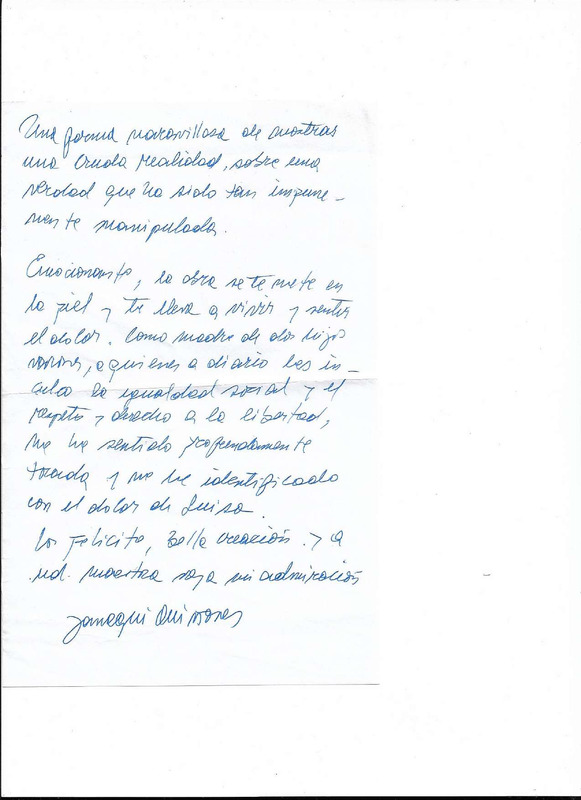 Una forma maravillosa de mostrar
una cruda realidad, sobre una
verdad que ha sido tan impune-
mente manipulada.
Emocionante, la obra se te mete en
la piel y te lleva a vivir y sentir
el dolor. Como madre de dos hijos
varones, a quienes a diario les in-
culco la igualdad social y el
respeto y derecho a la libertad,
me he sentido profundamente
tocada y me he identificado
con el dolor de Luisa.
Los felicito, bella creación. Y a
ud. maestra vaya mi admiración